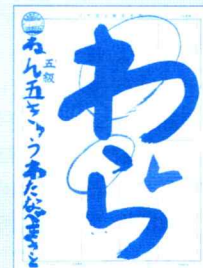 わら
五級
ねん五きゅう わたなべ